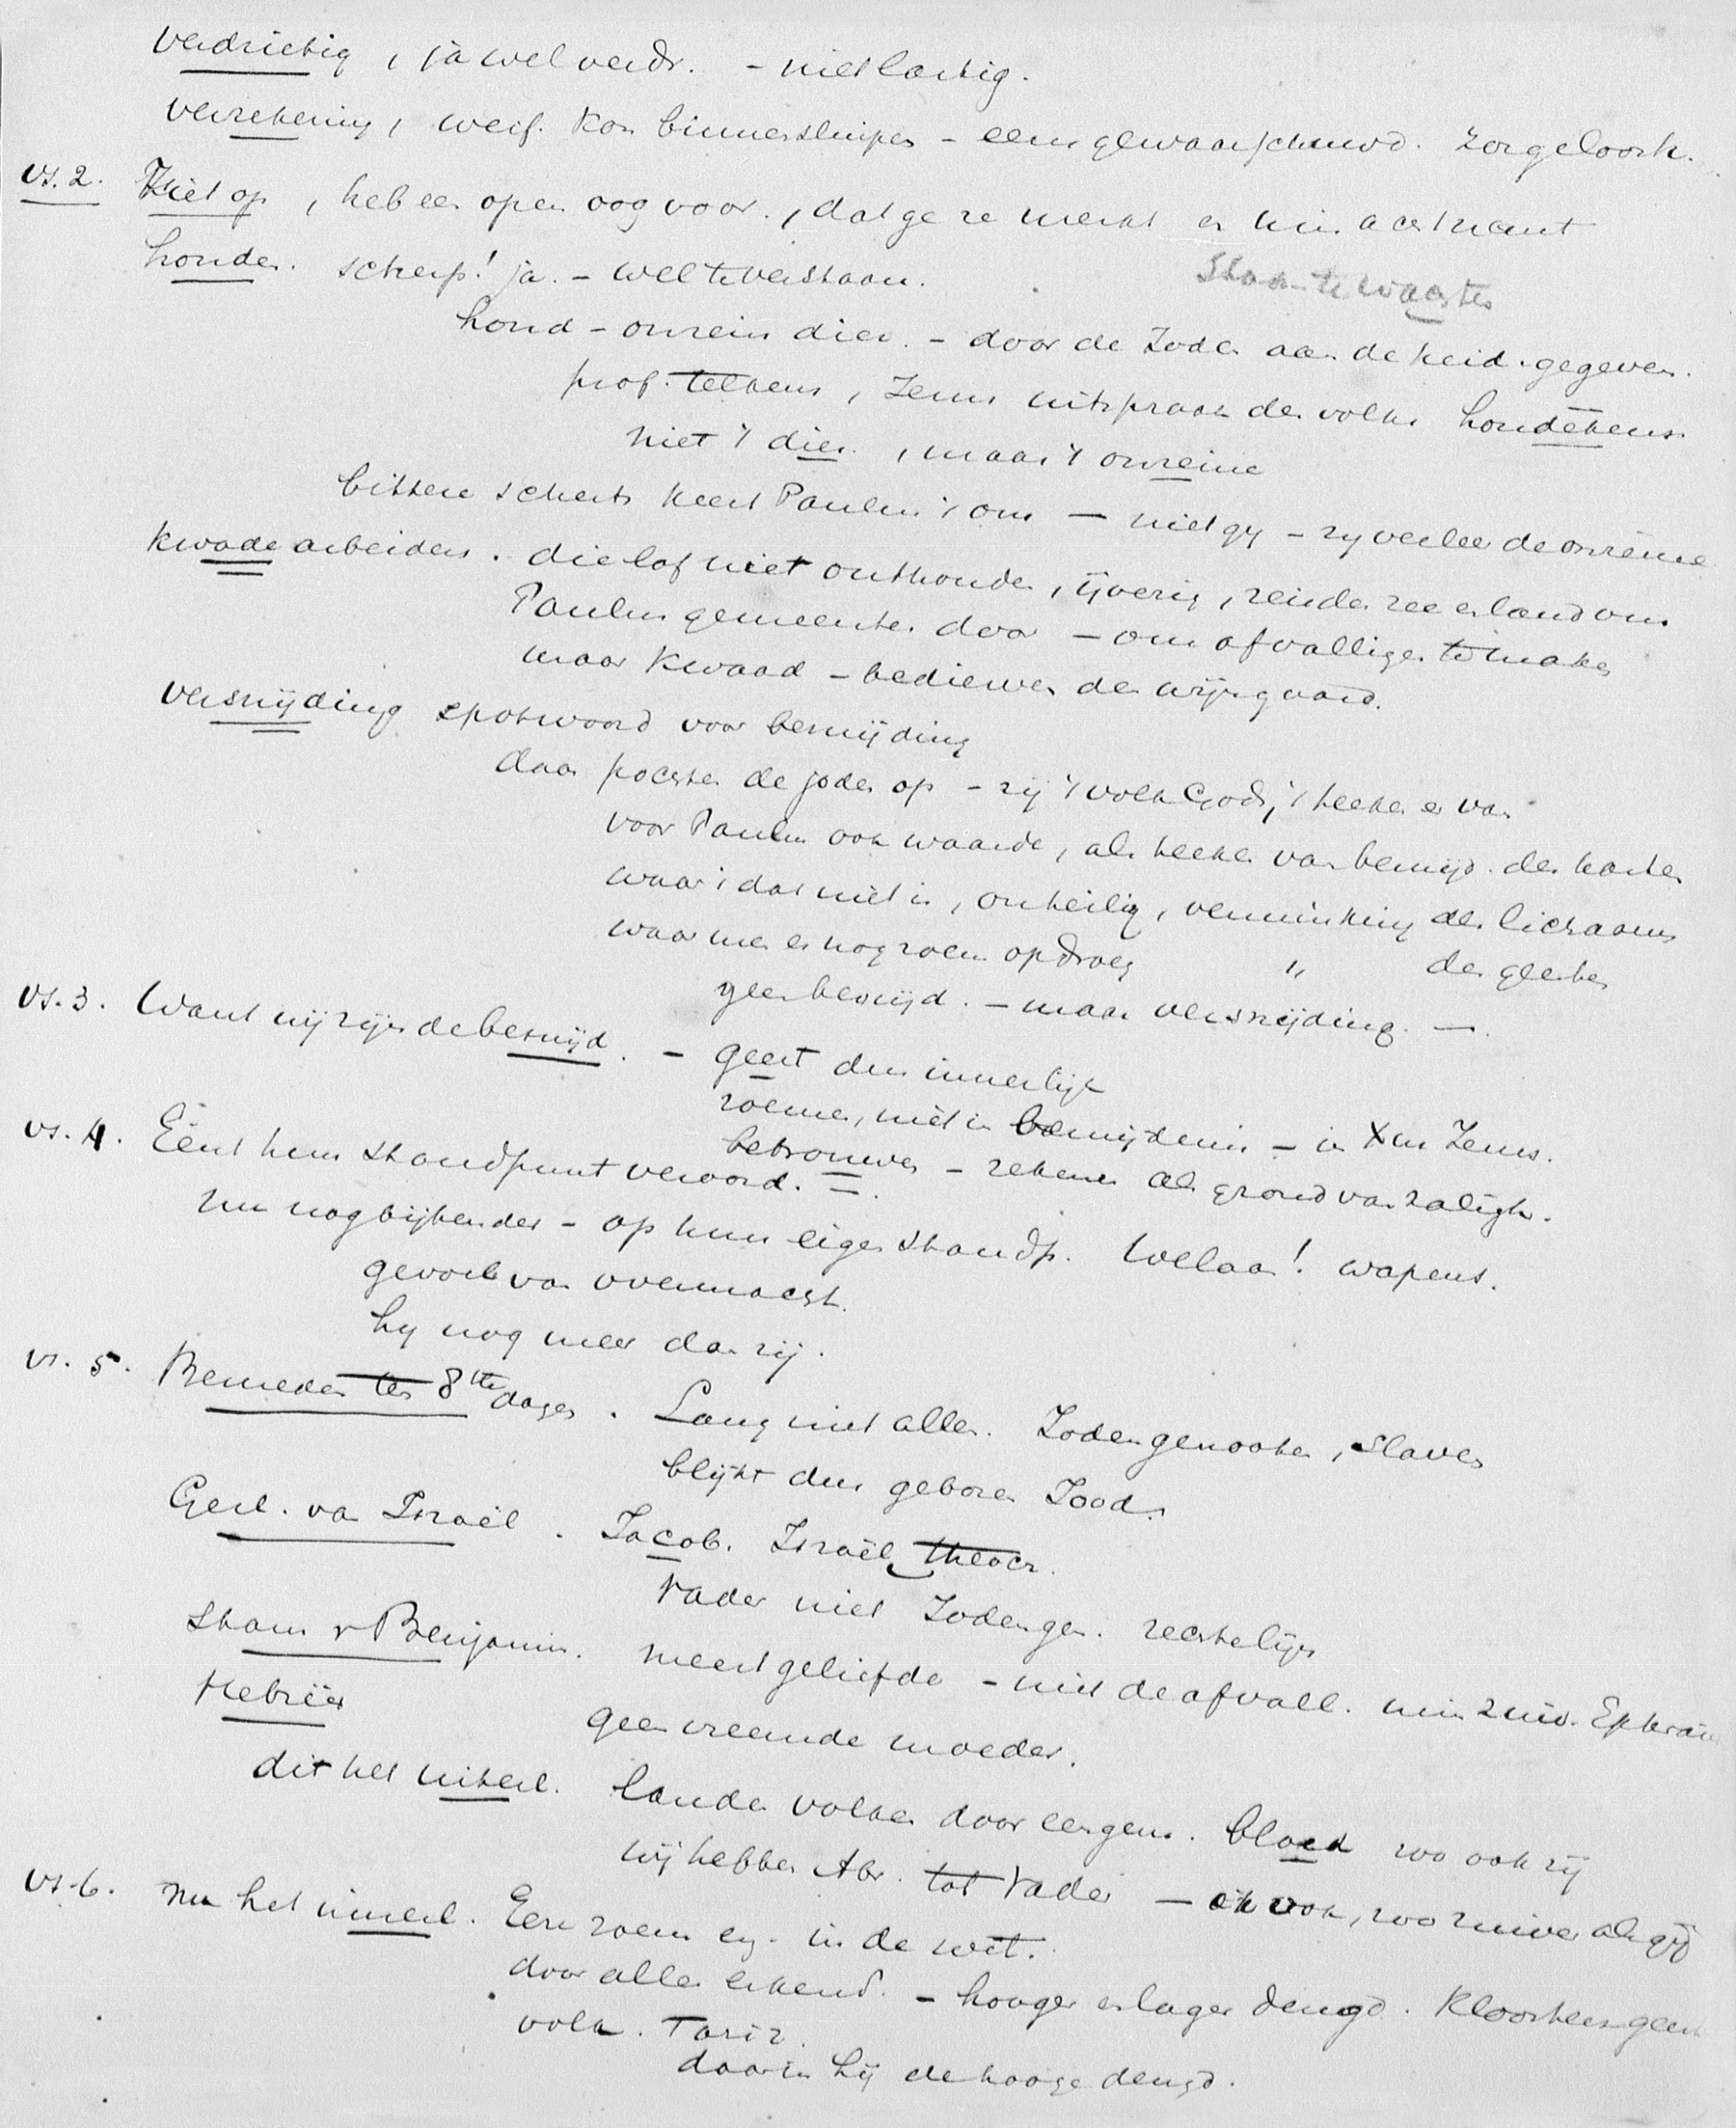 verdrietig, ja wel verdr. - niet lastig.
verzekering, weif. kon binnensluipen - eens gewaarschuwd. zorgeloosh.
vs. 2. Ziet op, heb een open oog voor, dat ge ze merkt en hin acht neemt
honden. scherp! ja. - wel te verstaan.
Staan te wachten
hond - onrein dier. - door de Joden aan de heid. gegeven.
prof. telkens, Jezus uitspraak der volks hondekens
niet 't dier, maar 't onreine
bittere scherts keert Paulus 't om - niet gy - zy veeleer de onreine
kwade arbeiders. die lof niet onthouden, ijverig, reisden zee en land om
Paulus gemeenten door - om afvalligen te maken
maar kwaad - bedierven den wijngaard.
versnijding spotwoord voor besnijding
daar pochten de joden op - zij 't volk Gods, 't teeken er van
voor Paulus ook waarde, als teeken van besnijd. des harten
waar dat niet is, onheilig, verminking des lichaams
waar men er nog roem op droeg " des geestes
geen besnijd. - maar versnijding. -.
vs. 3. Want wij zijn de besnijd. - geest dus innerlijk
roemen, niet in besnijdenis - in Xus Jezus.
betrouwen - rekenen als grond van zaligh.
vs. 4. Eerst hun standpunt veroord. -.
nu nog bijtender - op hun eigen standp. Welaan! wapens.
gevoel van overmacht.
hy nog meer dan zij.
vs. 5. Besneden ten 8ste dagen. Lang niet allen. Jodengenooten, slaven
blijkt dus geboren Jood.
Gesl. van Israël. Jacob. Israël theocr.
Vader niet Jodengen. rechtelijn
Stam v Benjamin. meest geliefde - niet de afvall. min zuiv. Ephraim
Hebreër geen vreemde moeder.
dit het uiterl. landen volken door eengem. bloed zoo ook zij
wij hebben Abr. tot vader - ik ook, zoo zuiver als gij
vs. 6. nu het innerl. Eere roem eg. in de wet.
door allen erkend. - hooger en lager deugd. Kloostergeest
volk. Fariz.
daarin hij de hooge deugd.